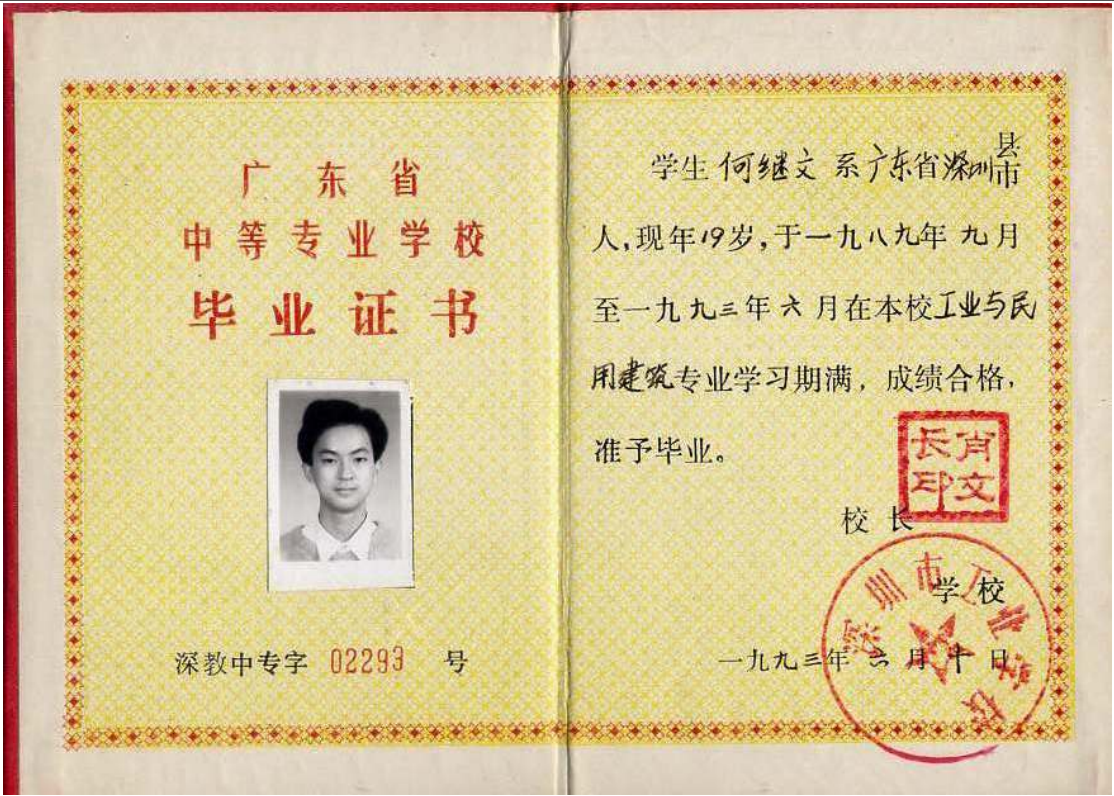 广东省
中等专业学校
毕业证书
深教中专字 02293 号
学生何继文系广东省深圳县市
人,现年19岁,于一九八九年九月
至一九九三年六月在本校工业与民
用建筑专业学习期满，成绩合格，
准予毕业。
校长
肖文长印
学校
深圳市工业学校
一九九三年六月十日